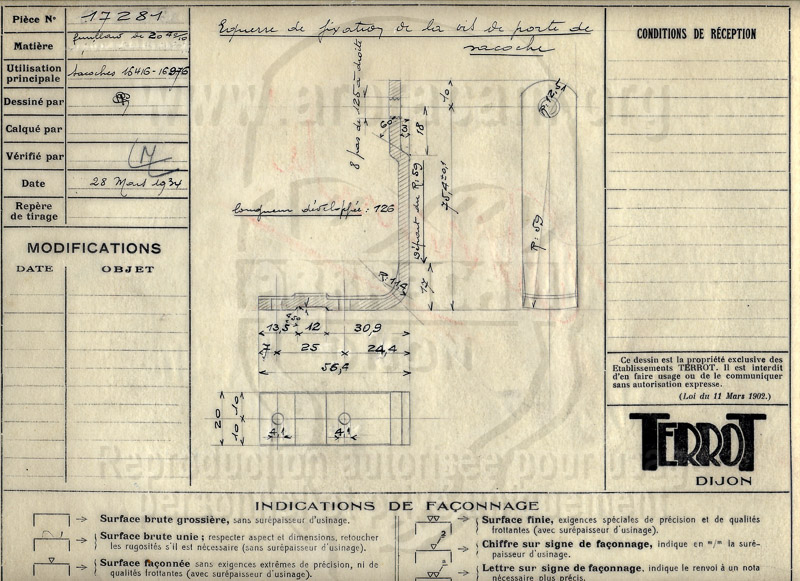 Pièce N° 17281
Matière feuillard de 20
Utilisation principale sacoches 16416-16976
Dessiné par
Calqué par
Vérifié par M
Date 28 Mars 1934
Repère de tirage
MODIFICATIONS
DATE OBJET
Equerre de fixation de la vis de porte de
sacoche
8 pas de 125 à droite
60°
10
18
75,4±0,1
Départ du R. 59
17
R. 12,5
R. 59
longueur développée : 126
13,5 12 30,9
7 25 24,4
56,4
20
10 10
4,1 4,1
CONDITIONS DE RÉCEPTION
Ce dessin est la propriété exclusive des
Etablissements TERROT. Il est interdit
d'en faire usage ou de le communiquer
sans autorisation expresse.
(Loi du 11 Mars 1902.)
TERROT
DIJON
INDICATIONS DE FAÇONNAGE
Surface brute grossière, sans surépaisseur d'usinage.
Surface brute unie ; respecter aspect et dimensions, retoucher
les rugosités s'il est nécessaire (sans surépaisseur d'usinage).
Surface façonnée sans exigences extrêmes de précision, ni de
qualités frottantes (avec surépaisseur d'usinage).
Surface finie, exigences spéciales de précision et de qualités
frottantes (avec surépaisseur d'usinage).
Chiffre sur signe de façonnage, indique en m/m la suré-
paisseur d'usinage.
Lettre sur signe de façonnage, indique le renvoi à un nota
nécessaire plus précis.
Reproduction autorisée pour usage